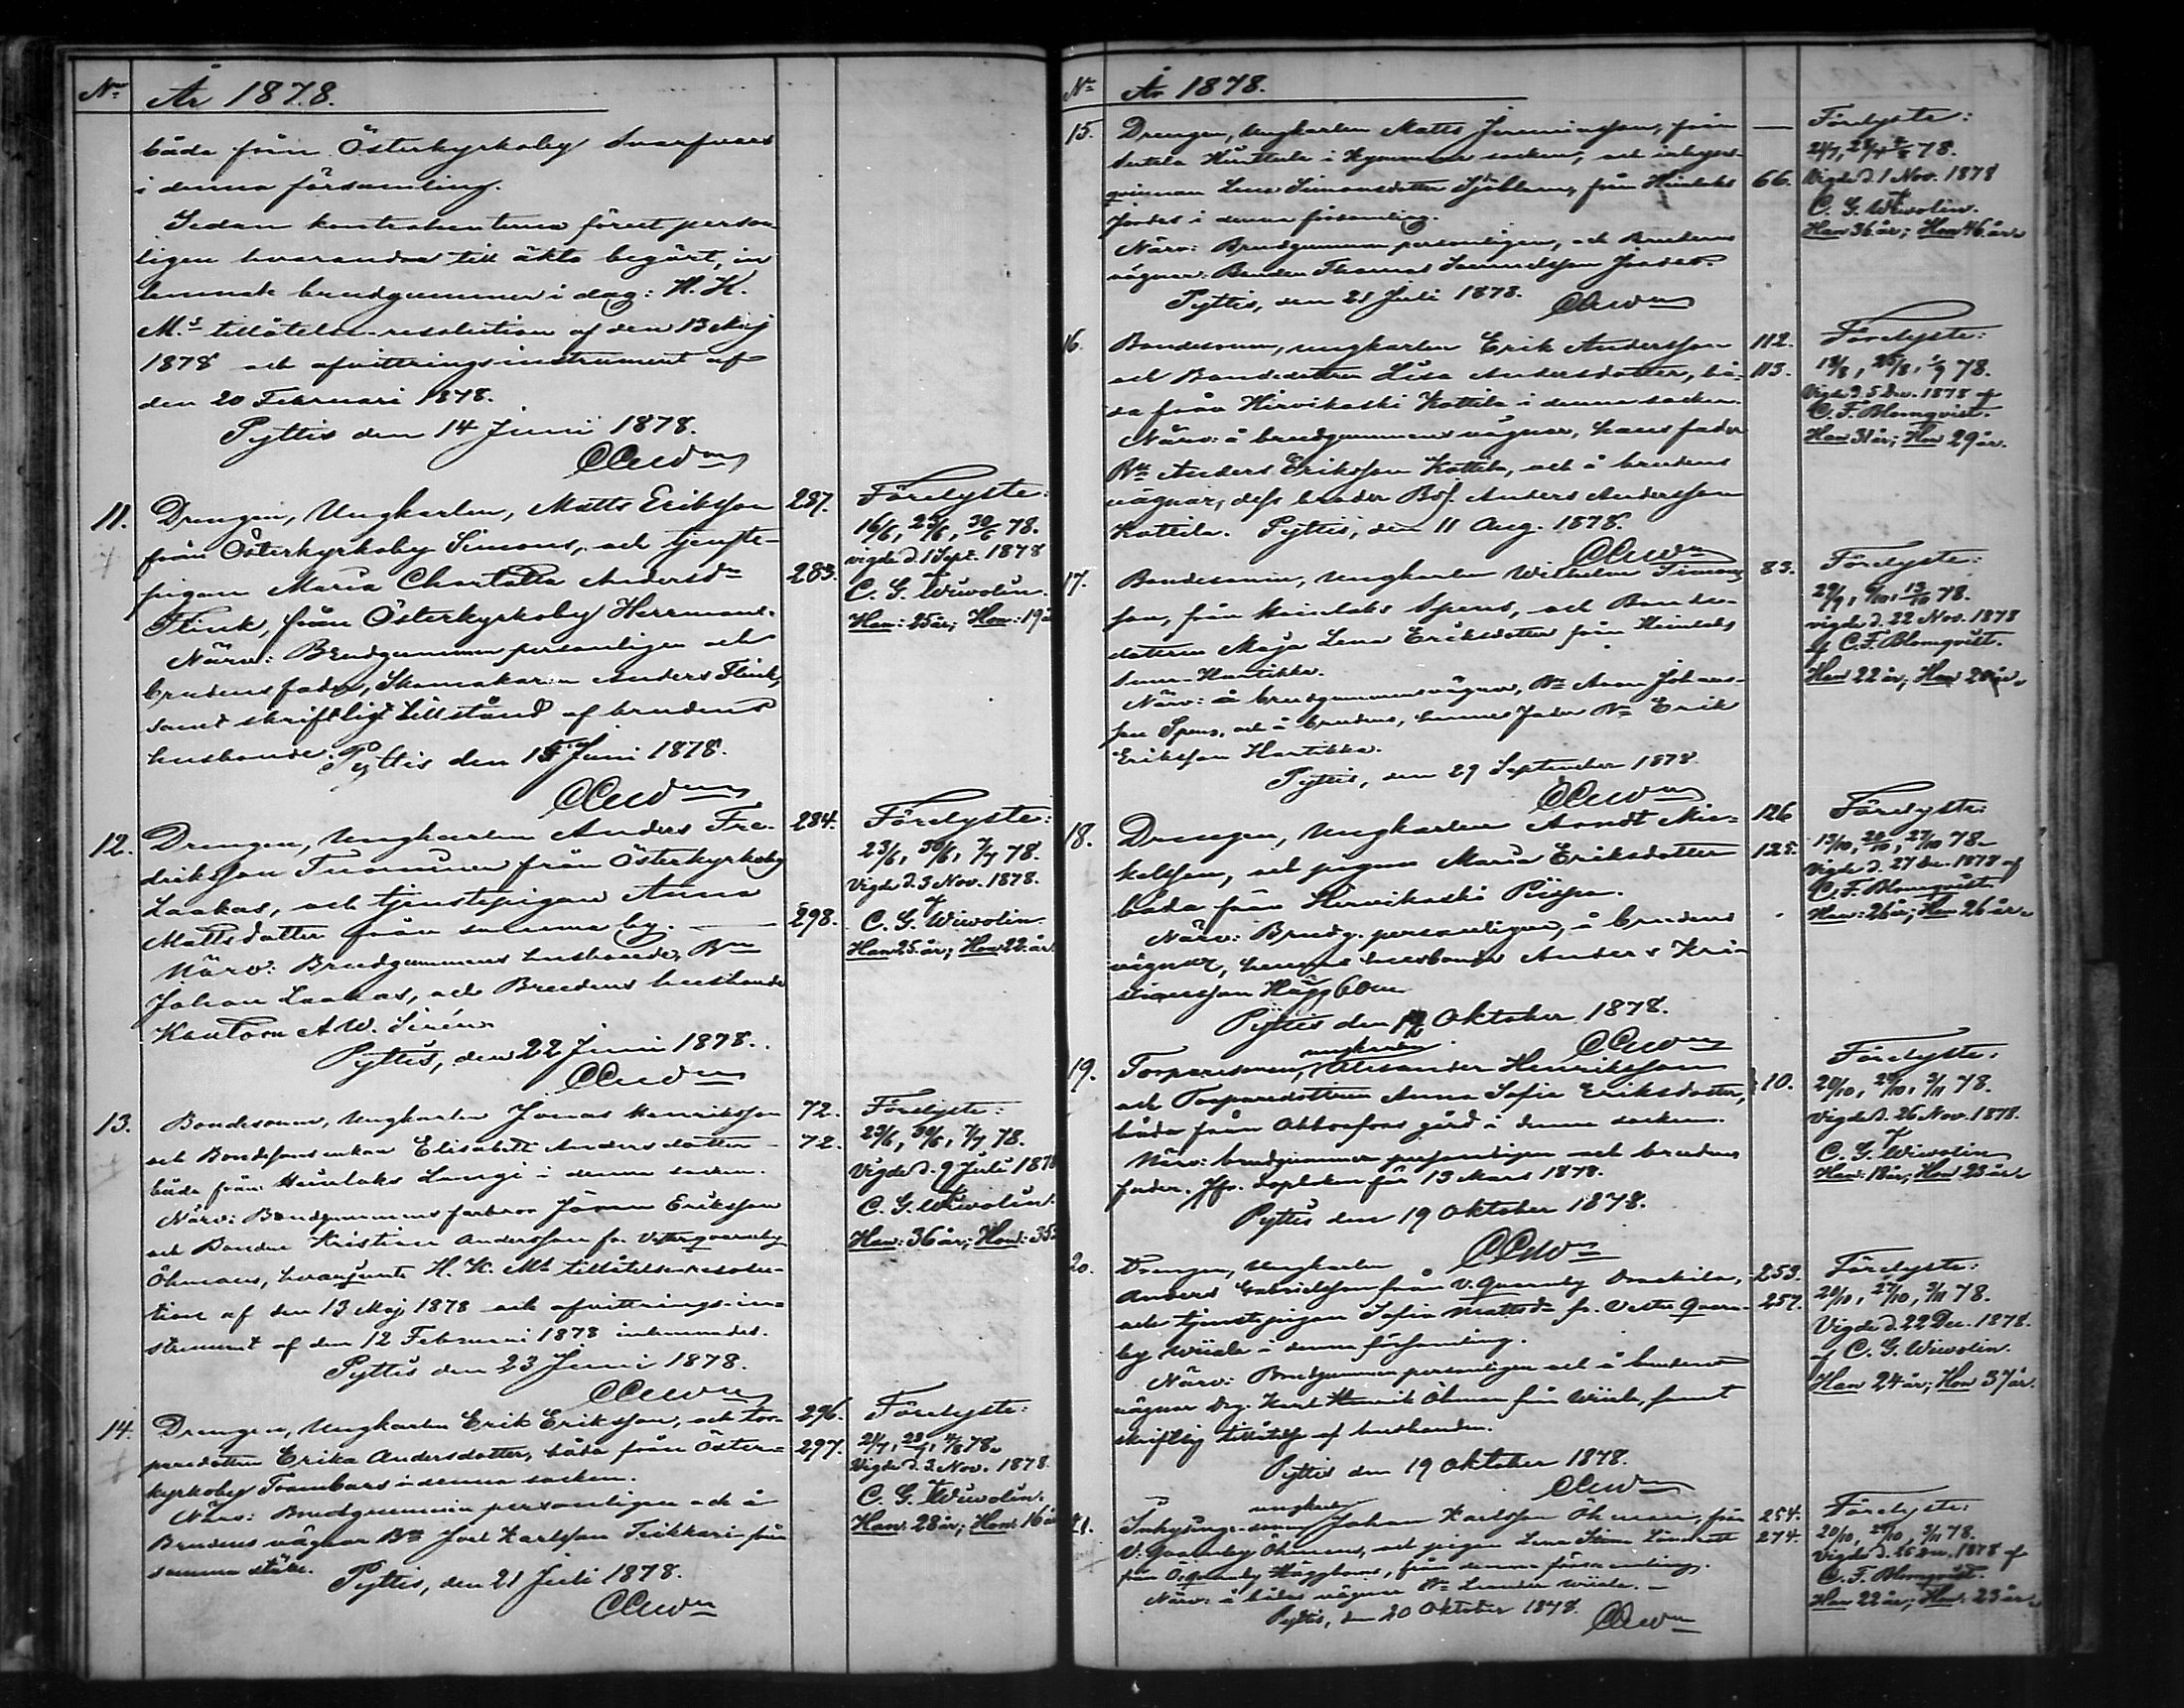 No
År 1878.
båda från Österkyrkoby Svarfvars
i denna församling.
Sedan kontrahenterna förut person
ligen hvarandra till äkta begärt, in
lemnade brudgummen i dag: H. K.
M:s tillåtelse-resolution af den 13 Maj
1878 och afvittringsinstrument af
den 20 Februari 1878.
Pyttis den 14 Juni 1878.
11.
Drengen, Ungkarlen, Matts Eriksson
287.
från Österkyrkoby Simons, och tjenste-
pigan Maria Charlotta Andersdr
283.
Flink, från Österkyrkoby Herrmans.
Närv: Brudgummen personligen och
brudens fader, Skomakaren Anders Flink,
samt skriftligt tillstånd af brudens
husbonde. Pyttis den 15 Juni 1878.
Förelyste:
16/6, 23/6, 30/6 78.
vigde d. 1 Sept. 1878
af
C. G. Wiwolin.
Han: 25 år; Hon: 19 å
12.
Drengen, Ungkarlen Anders Fre-
284.
driksson Tuominen från Österkyrkoby
Laakas, och tjenstepigan Anna
Mattsdotter från samma by.
298.
Närv: Brudgummens husbonde, Bn
Johan Laakas, och Brudens husbonde
Kantorn A W. Sirén.
Pyttis, den 22 Juni 1878.
Förelyste:
23/6, 30/6, 7/7 78.
Vigde d. 3 Nov. 1878.
af
C. G. Wiwolin.
Han 25 år; Hon 22 år.
13.
Bondesonen, Ungkarlen Jonas Henriksson
72.
och Bondesonsenkan Elisabeth Andersdotter
72.
båda från Heinlaks Langi i denna socken.
Närv: Brudgummens farbror Jöran Eriksson
och Bonden Kristian Andersson fr. Vesterqvarnby
Öhmans, hvarjemte H. K. Mts tillåtelseresolu-
tion af den 13 Maj 1878 och afvittrings-in-
strument af den 12 Februari 1878 inlemnades.
Pyttis den 23 Juni 1878.
Förelyste:
23/6, 30/6, 7/7 78.
Vigde d. 9 Juli 1878
af
C. G. Wiwolin.
Han: 36 år; Hon: 35
14.
Drengen, Ungkarlen Erik Eriksson, och tor-
296.
paredottren Erika Andersdotter, båda från Öster-
297.
kyrkoby Frambars i denna socken.
Närv: Brudgummen personligen och å
Brudens vägnar Bn Joel Karlsson Tikkari från
samma ställe.
Pyttis, den 21 Juli 1878.
Förelyste:
21/7, 28/7, 4/8 78.
Vigde d. 3 Nov. 1878
af
C. G. Wiwolin.
Han: 28 år; Hon: 16 år
No
År 1878.
15.
Drengen, Ungkarlen Matts Jeremiasson, från
Sutela Hurttula i Kymmene socken, och inhyses-
qvinnan Lena Simonsdotter Sjöblom, från Heinlaks
66.
Jordas i denna församling.
Närv: Brudgummen personligen, och Brudens
vägnar: Bonden Thomas Samuelsson Jordas.
Pyttis, den 21 Juli 1878.
Förelyste:
21/7, 28/7, 4/8 78.
Vigde d. 1 Nov. 1878
af
C. G. Wiwolin.
Han 36 år; Hon 46 år.
16.
Bondesonen, ungkarlen Erik Andersson
112.
och Bondedottren Lisa Andersdotter, bå-
113.
da från Hirvikoski Kottila i denna socken.
Närv: å brudgummens vägnar, hans fader
Bn Anders Eriksson Kottila, och å brudens
vägnar, dess broder Bdsn. Anders Andersson
Kottila. Pyttis, den 11 Aug. 1878.
Förelyste:
18/8, 25/8, 1/9 78.
Vigde d. 5 Dec. 1878 af
C. F. Blomqvist.
Han 31 år; Hon 29 år.
17.
Bondesonen, Ungkarlen Wilhelm Simons
83.
son, från Heinlaks Spens, och Bonde-
dottren Maja Lena Eriksdotter från Heinlaks
Simu-Hartikka.
Närv: å brudgummens vägnar, Bn Aron Johans-
son Spens, och å brudens, hennes fader Bn Erik
Eriksson Hartikka.
Pyttis, den 29 September 1878
Förelyste:
29/9, 6/10, 13/10 78.
vigde d. 22 Nov. 1878
af C. F. Blomqvist.
Han 22 år, Hon 20 år.
18.
Drengen, Ungkarlen Arndt Mic-
126
kelsson, och pigan Maria Eriksdotter
125.
båda från Hirvikoski Piispa.
Närv: Brudg. personligen, å brudens
vägnar, hennes husbonde Anders Kri-
stiansson Häggblom
Pyttis den 12 Oktober 1878.
Förelyste:
13/10, 20/10, 27/10 78.
Vigde d. 27 Dec. 1878 af
C. F. Blomqvist.
Han: 26 år; Hon 26 år.
19.
ungkarlen
Torparesonen, Alexander Henriksson
och Torparedottren Anna Sofia Eriksdotter,
10.
båda från Abborfors gård i denna socken.
Närv: brudgummen personligen och brudens
fader. Jfr. för 13 Mars 1878.
Pyttis den 19 Oktober 1878.
Förelyste:
20/10, 27/10, 3/11 78.
Vigde d. 26 Nov. 1878.
af
C. G. Wiwolin
Han: 18 år; Hon 23 år
20.
Drengen, Ungkarlen
Anders Gabrielsson från V. Qvarnby Draskila,
253.
och tjenstepigan Sofia Mattsdr fr. Vester Qvarn-
257.
by Wiiala i denna församling.
Närv: Brudgummen personligen och å brudens
vägnar Drg. Karl Henrik Öhman från Wiiala, samt
skriftlig tillåtelse af husbonden.
Pyttis den 19 Oktober 1878.
Förelyste:
20/10, 27/10, 3/11 78.
Vigde d. 22 Dec. 1878.
af C. G. Wiwolin.
Han 24 år; Hon 37 år.
21.
ungkarlen
Inhysinge-sonen Johan Karlsson Öhman, från
254.
V. Qvarnby Öhmans, och pigan Lena Stina
274.
från Ö. Qvarnby Häggboms, från denna församling.
Närv: å bådas vägnar Bn Leander Wiiala.
Pyttis, den 20 Oktober 1878.
Förelyste:
20/10, 27/10, 3/11 78.
Vigde d. 26 Dec. 1878 af
C. F. Blomqvist.
Han 22 år; Hon: 23 år